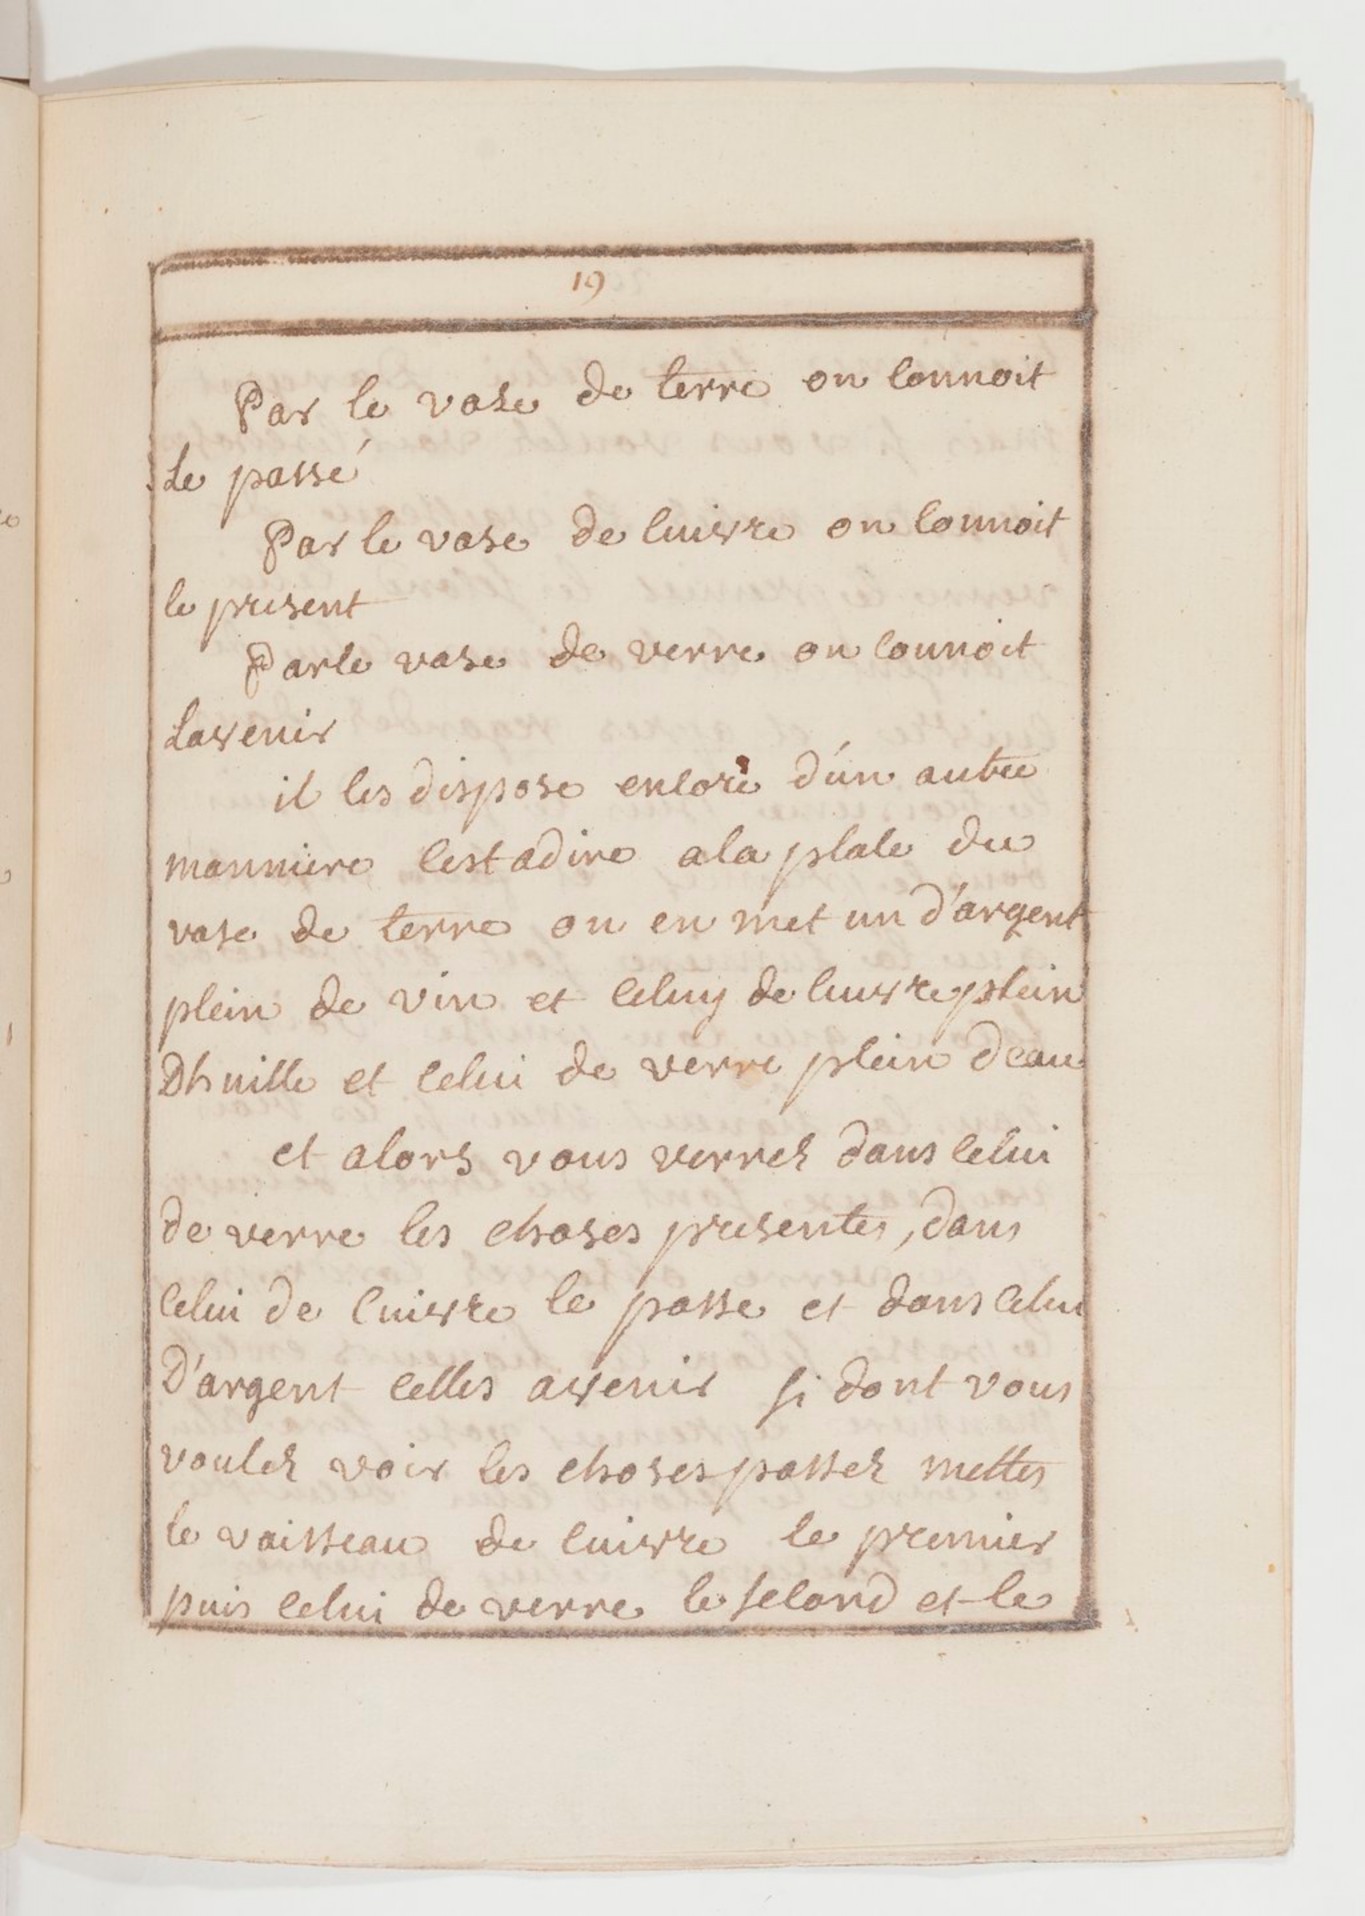 19
Par le vase de terre on connoit
Le passé
Par le vase de cuivre on connoit
le present
Par le vase de verre on connoit
Lavenir
il les dispose encore d'un autre
manniere cest adire a la place du
vase de terre on en met un d'argent
plein de vin et celuy de cuivre plein
Dhuille et celui de verre plein deau
et alors vous verrez dans celui
de verre les choses presentes, dans
celui de cuivre le passe et dans celui
D'argent celles avenir si dont vous
voulez voir les choses passez mettes
le vaisseau de cuivre le premier
puis celui de verre le second et le